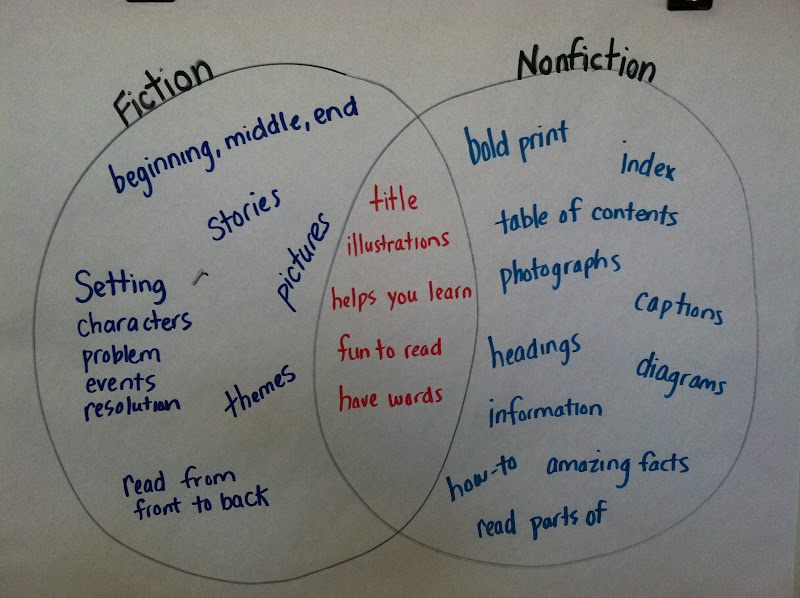 Fiction
beginning, middle, end
Stories
pictures
Setting
characters
problem
events
resolution
themes
read from
front to back
title
illustrations
helps you learn
fun to read
have words
Nonfiction
bold print
index
table of contents
photographs
captions
headings
diagrams
information
how-to
amazing facts
read parts of